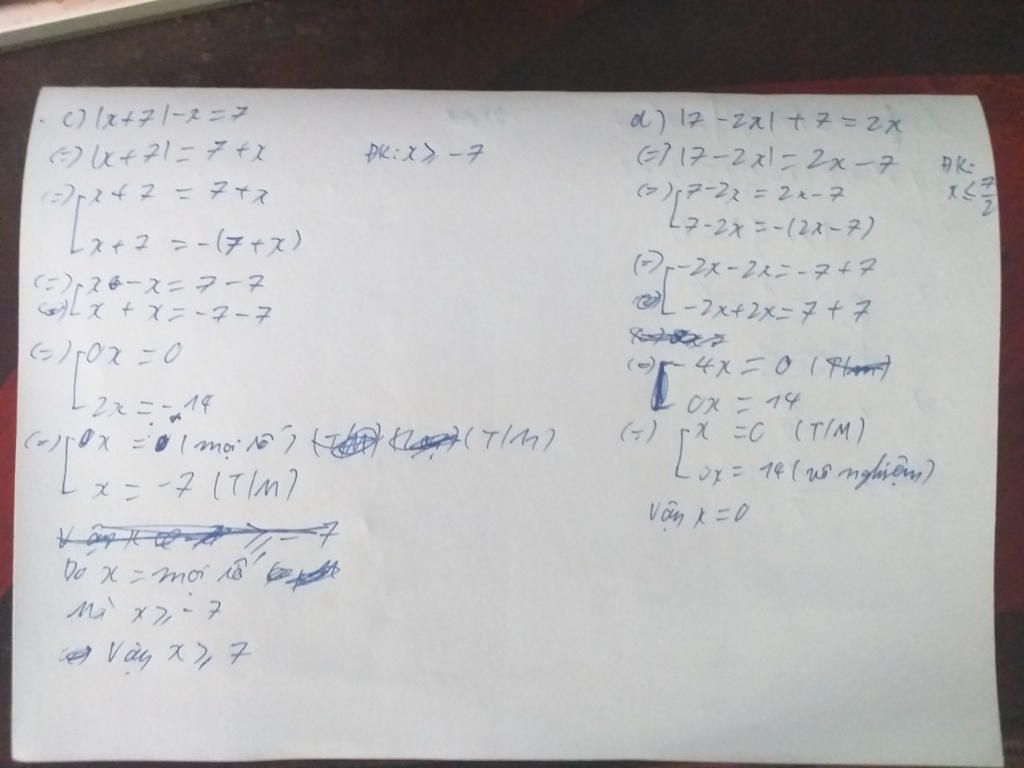 c) |x+7|-x=7
(=) |x+7| = 7+x ĐK: x ≥ -7
(=) [ x+7 = 7+x
x+7 = -(7+x)
(=) [ x -x = 7-7
x + x = -7-7
(=) [ 0x = 0
2x = -14
(=) [ 0x = 0 (mọi số) (T/M)
x = -7 (T/M)
Do x = mọi số
Mà x ≥ -7
Vậy x ≥ 7
d) |7-2x| + 7 = 2x
(=) |7-2x| = 2x-7 ĐK: x ≤ 7/2
(=) [ 7-2x = 2x-7
7-2x = -(2x-7)
(=) [ -2x-2x = -7+7
-2x+2x = 7+7
(=) [ -4x = 0
0x = 14
(=) [ x = 0 (T/M)
0x = 14 (vô nghiệm)
Vậy x = 0